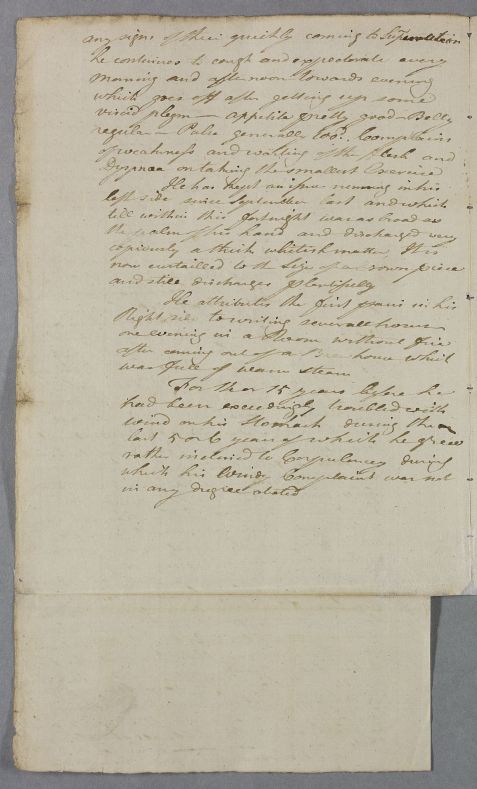 any signs of their quickly coming to Supuration
he continues to cough and expectorate every
morning and afternoon towards evening
which goes off after getting up some
viscid plegm — appetite pretty good - Belly
regular — Pulse generally 100. Complains
of weakness and wasting of the flesh and
Dyspnœa on taking the smallest Exercise
He has kept an issue running in his
left side since September last and which
till within this fortnight was as broad as
the palm of his hand and discharged very
copiously a thick whitish matter. It is
now curtailled to the size of a crown piece
and still discharges plentifully
He attributes the first pain in his
Right side to writing severall hours
one evening in a Room without fire
after coming out of a Brew house which
was full of warm steam
For 14 or 15 years before he
had been exceedingly troubled with
wind on his Stomach during the
last 5 or 6 years of which he grew
rather inclined to Corpulency during
which his Windy Complaint was not
in any degree abated